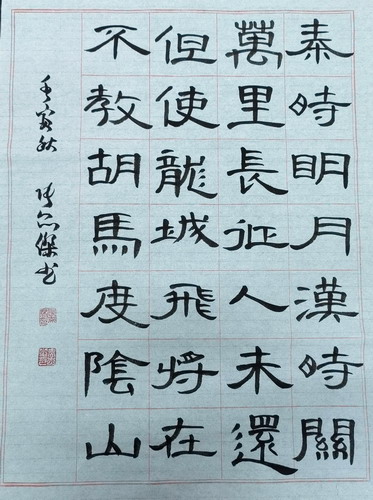 秦時明月漢時關
萬里長征人未還
但使龍城飛將在
不教胡馬度陰山
壬寅秋 傑书